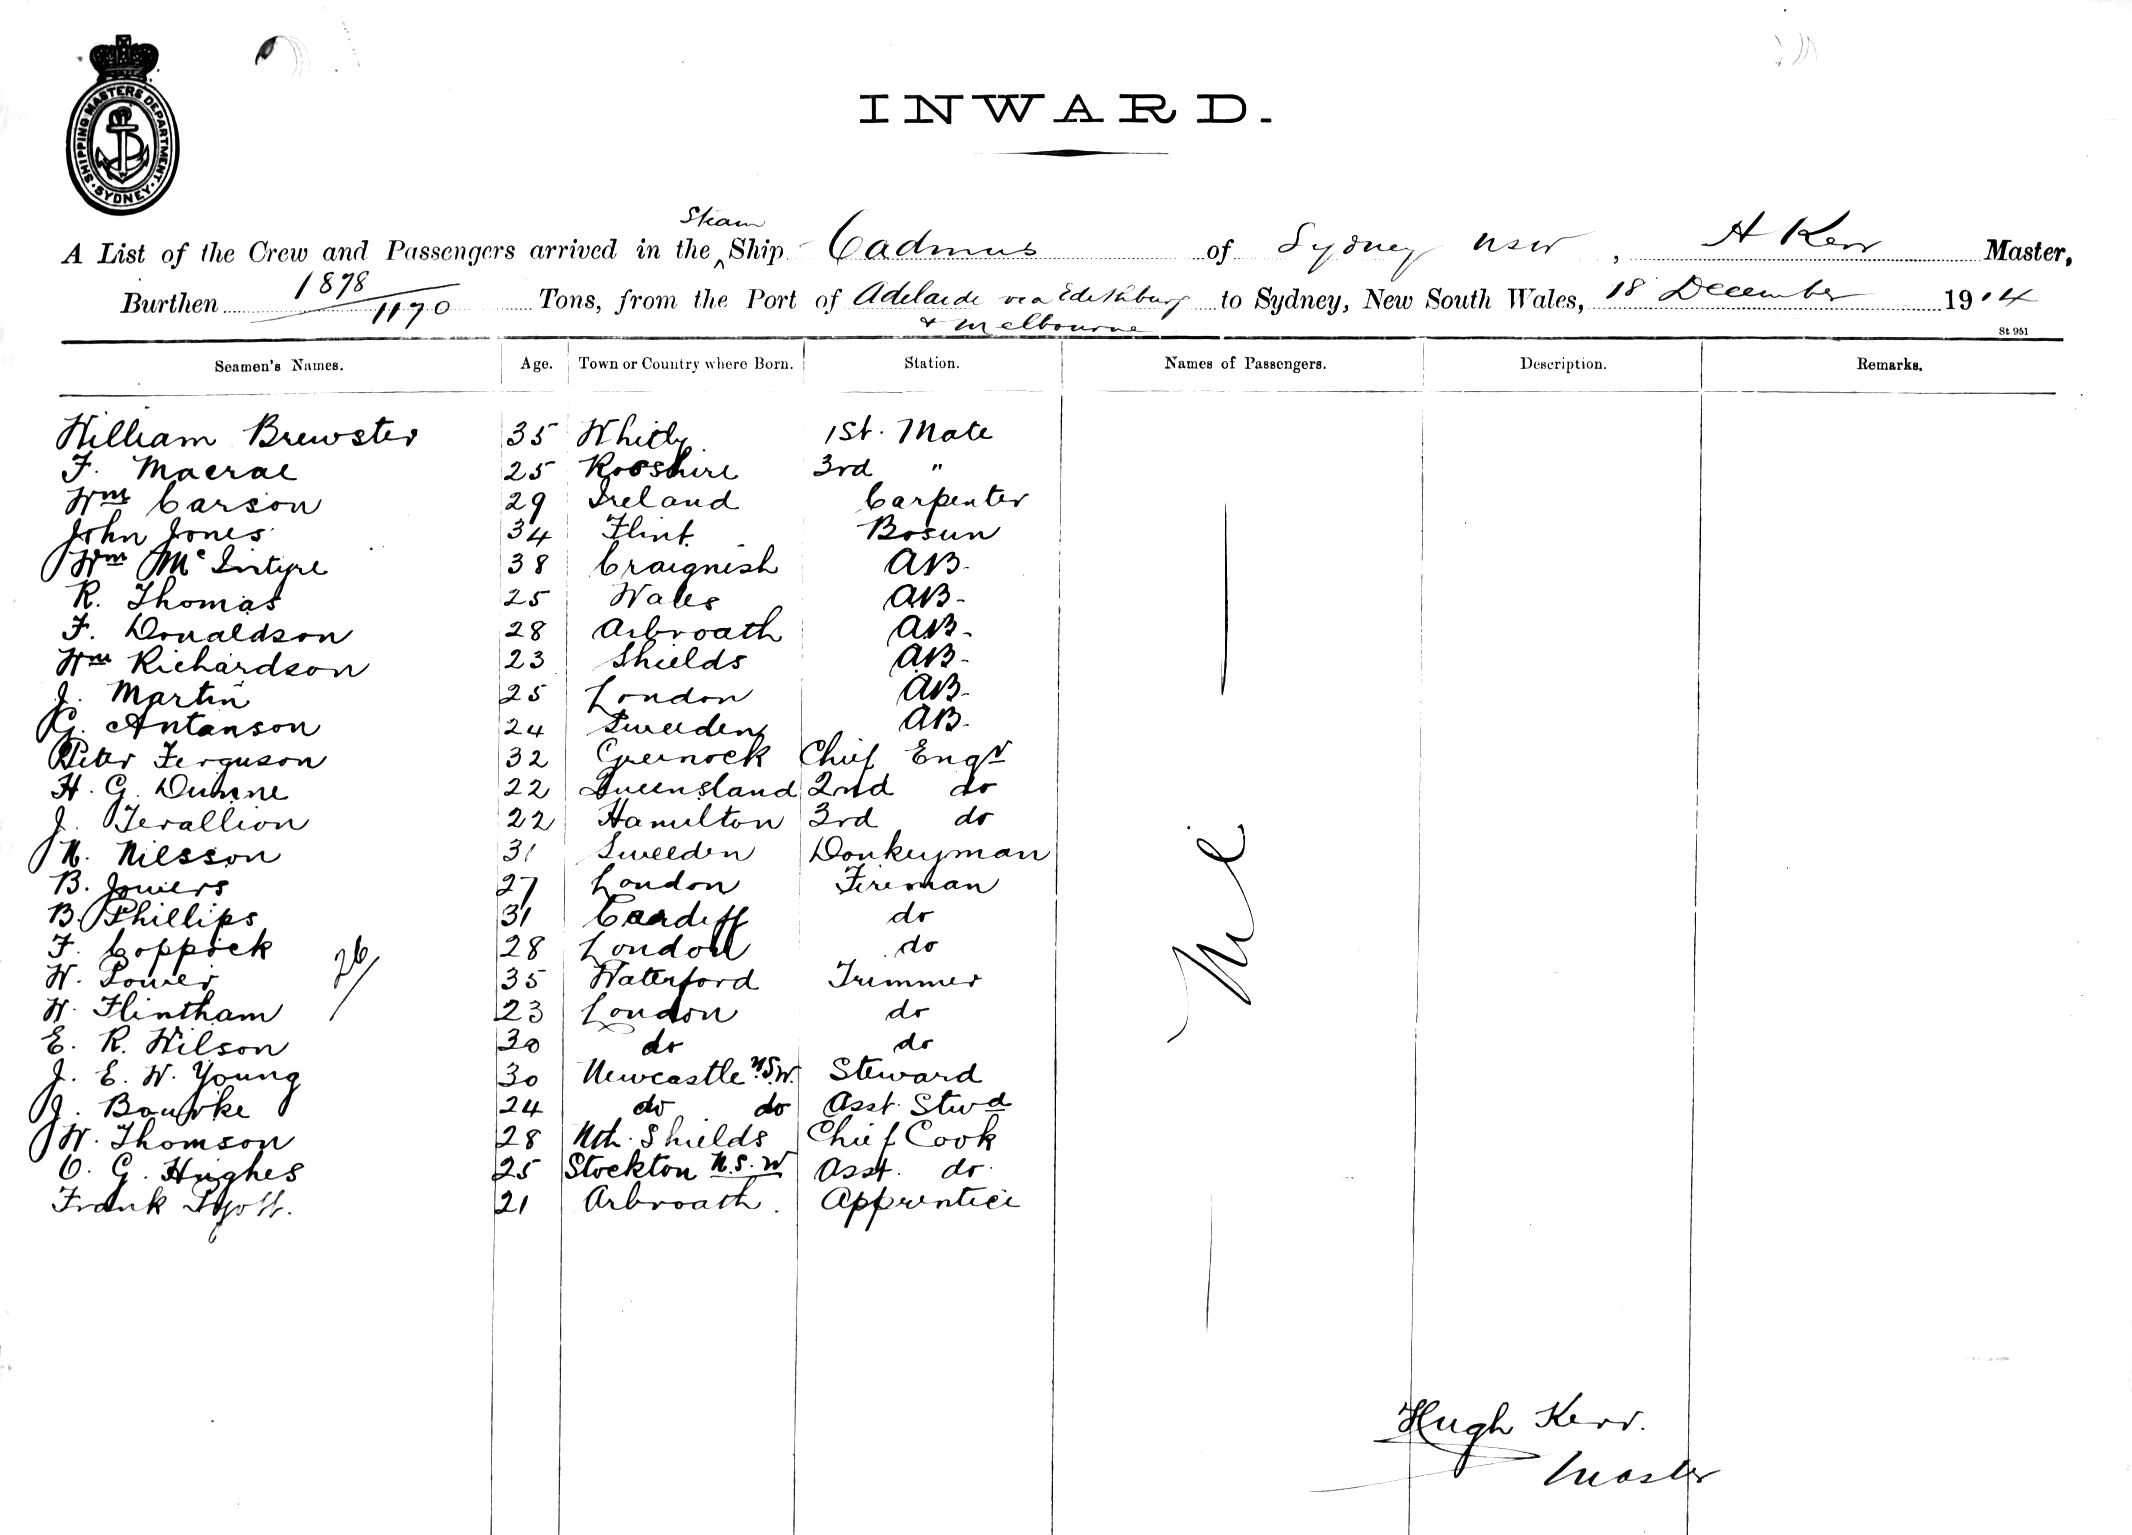 SHIPPING MASTERS DEPARTMENT. SYDNEY
INWARD.
Steam
A List of the Crew and Passengers arrived in the ^ Ship Cadmus of Sydney NSW, H Kerr Master,
Burthen 1878/1170 Tons, from the Port of Adelaide via Edithburg to Sydney, New South Wales, 18 December 1904
& Melbourne
St 951
Seamen's Names. Age. Town or Country where Born. Station. Names of Passengers. Description. Remarks.
William Brewster 35 Whitby 1st. Mate
F. Macrae 25 Rosshire 3rd "
Wm Carson 29 Ireland Carpenter
John Jones 34 Flint. Bosun
Wm McIntyre 38 Craignish AB-
R. Thomas 25 Wales AB-
F. Donaldson 28 Arbroath AB-
Wm Richardson 23 Shields AB-
J. Martin 25 London AB-
G. Antanson 24 Sweeden AB-
Peter Ferguson 32 Greenock Chief Engr
H. G. Dunne 22 Queensland 2nd do
J. Terallion 22 Hamilton 3rd do
N. Nilsson 31 Sweeden Donkeyman
B. Jowers 27 London Fireman
B. Phillips 31 Cardiff do
F. Coppock 28 London do
W. Power 35 Waterford Trimmer
26/
W. Flintham 23 London do
E. R. Wilson 30 do do
J. E. W. Young 30 Newcastle N.S.W. Steward
J. Bourke 24 do do Asst. Stwd
W. Thomson 28 Nth. Shields Chief Cook
O. G. Hughes 25 Stockton N.S.W Asst. do.
Frank 21 Arbroath. Apprentice
Nil
Hugh Kerr.
Master